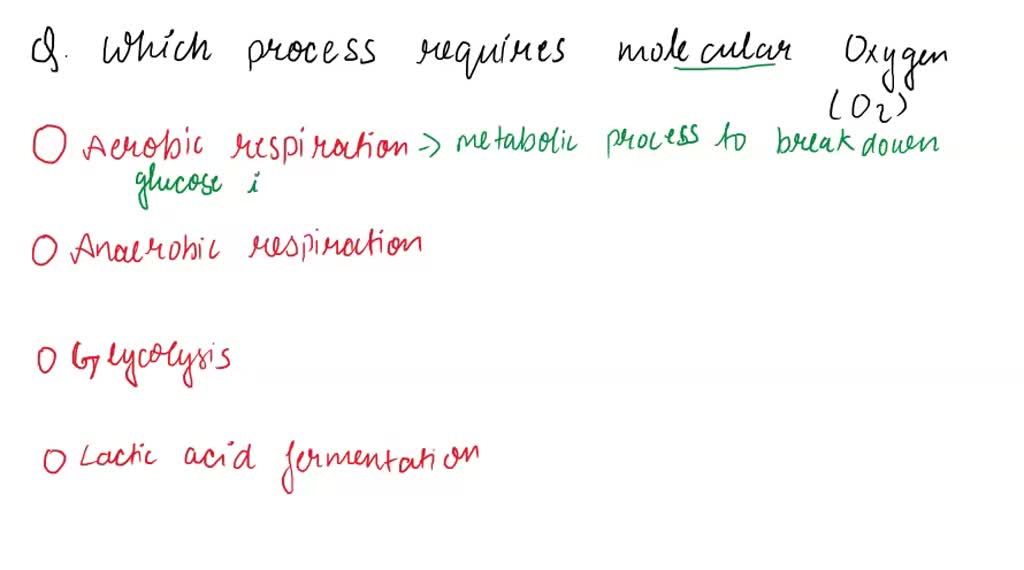 Q. Which process requires molecular Oxygen
(O2)
Aerobic respiration -> metabolic process to breakdown
glucose i
Anaerobic respiration
Glycolysis
Lactic acid fermentation